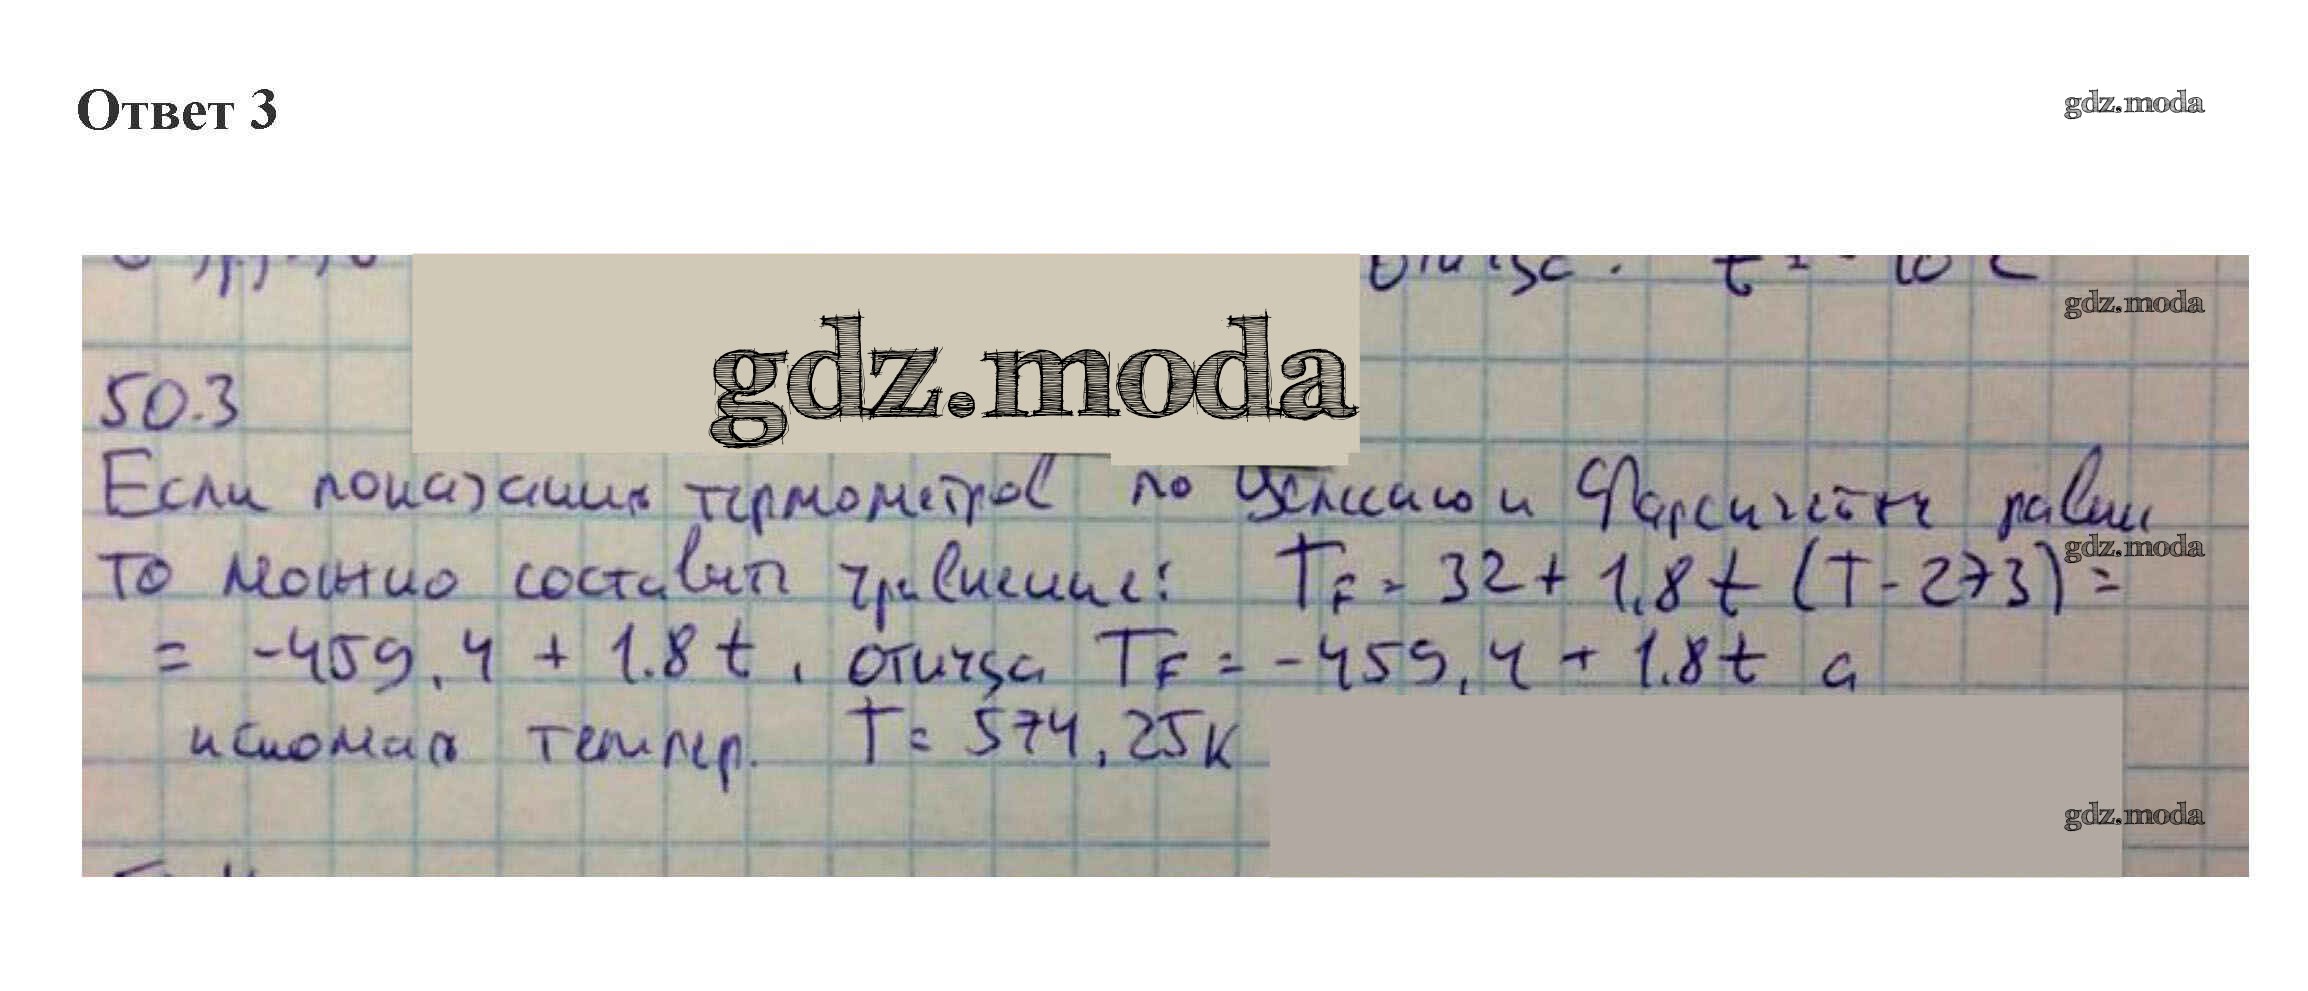 Ответ 3
gdz.moda
gdz.moda
gdz.moda
50.3
Если показания термометров по Цельсию и Фаренгейту равны
gdz.moda
то можно составить уравнение: T_F = 32 + 1,8 t (T - 273) =
= -459,4 + 1.8 t, откуда T_F = -459,4 + 1.8 t а
искомая темпер. T = 574,25 К
gdz.moda